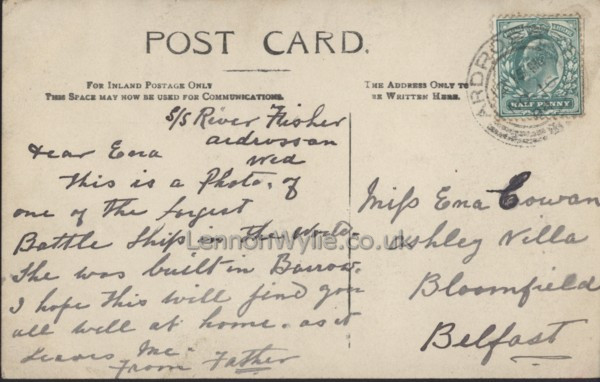 POST CARD.
FOR INLAND POSTAGE ONLY
THIS SPACE MAY NOW BE USED FOR COMMUNICATIONS.
THE ADDRESS ONLY TO
BE WRITTEN HERE.
ARDROS
HALF PENNY
S/S River Fisher
ardrossan
Wed
Dear Ena
This is a Photo. of
one of the largest
Battle Ships in the World.
She was built in Barrow.
I hope this will find you
all well at home. as it
leaves me.
From Father
Miss Ena Cowan
Ashley Villa
Bloomfield
Belfast
LennonWylie.co.uk